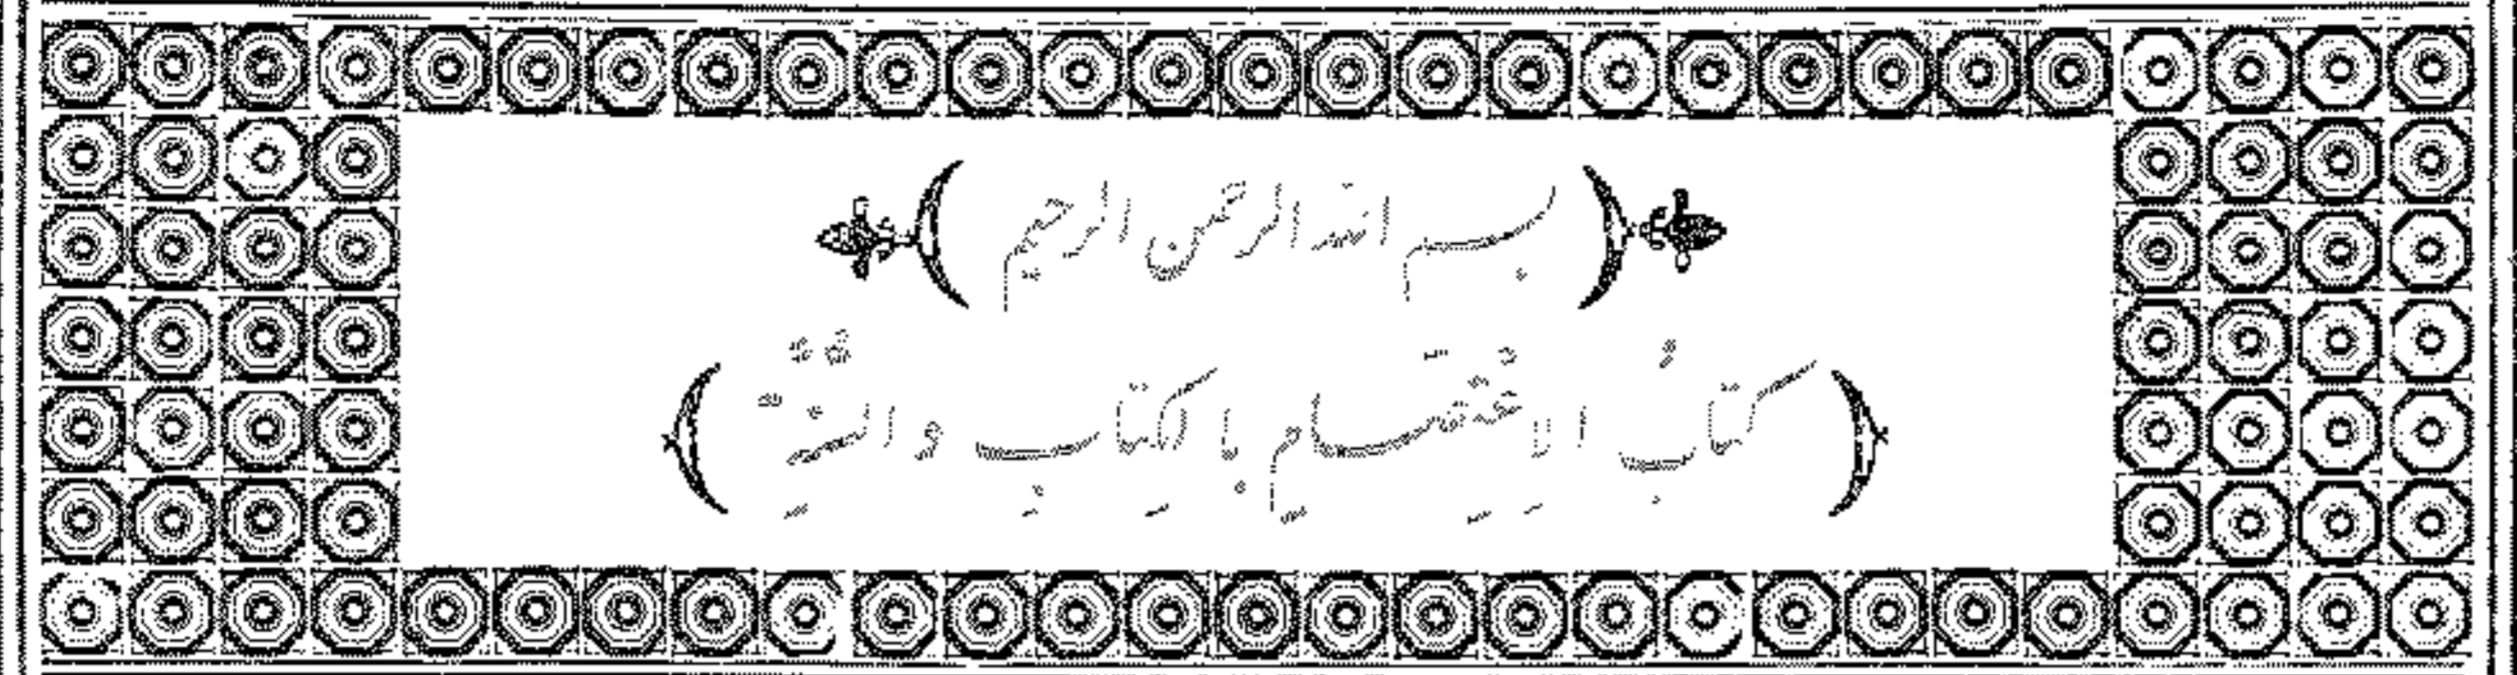 (بسم الله الرحمن الرحيم)
(كتابُ الاِعْتِصَامِ بِالكِتَابِ وَالسُّنَّةِ)